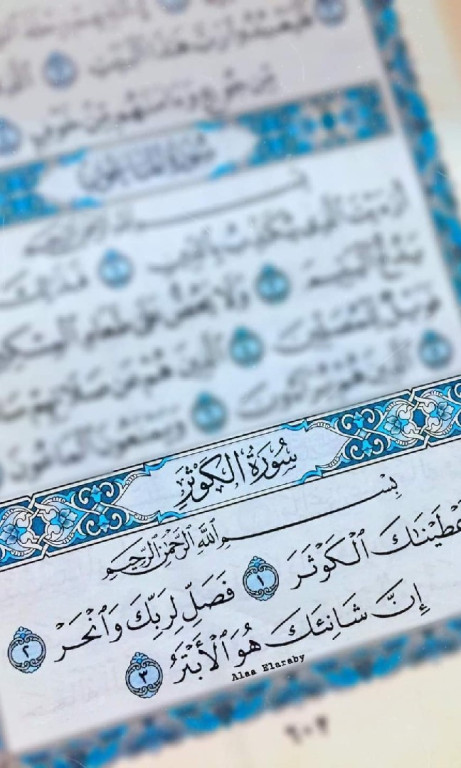 فليعبدوا رب هذا البيت
من جوع وءامنهم من خوف
سورة الماعون
بسم الله الرحمن الرحيم
أرءيت الذي يكذب بالدين ١ فذلك
يدع اليتيم ٢ ولا يحض على طعام المسكين
فويل للمصلين ٤ الذين هم عن صلاتهم
الذين هم يراءون ٦
سُورَةُ الكَوْثَرِ
بِسْمِ اللَّهِ الرَّحْمَٰنِ الرَّحِيمِ
عْطَيْنَٰكَ ٱلْكَوْثَرَ ١ فَصَلِّ لِرَبِّكَ وَٱنْحَرْ ٢
إِنَّ شَانِئَكَ هُوَ ٱلْأَبْتَرُ ٣
Alaa Elaraby
٦٠٢